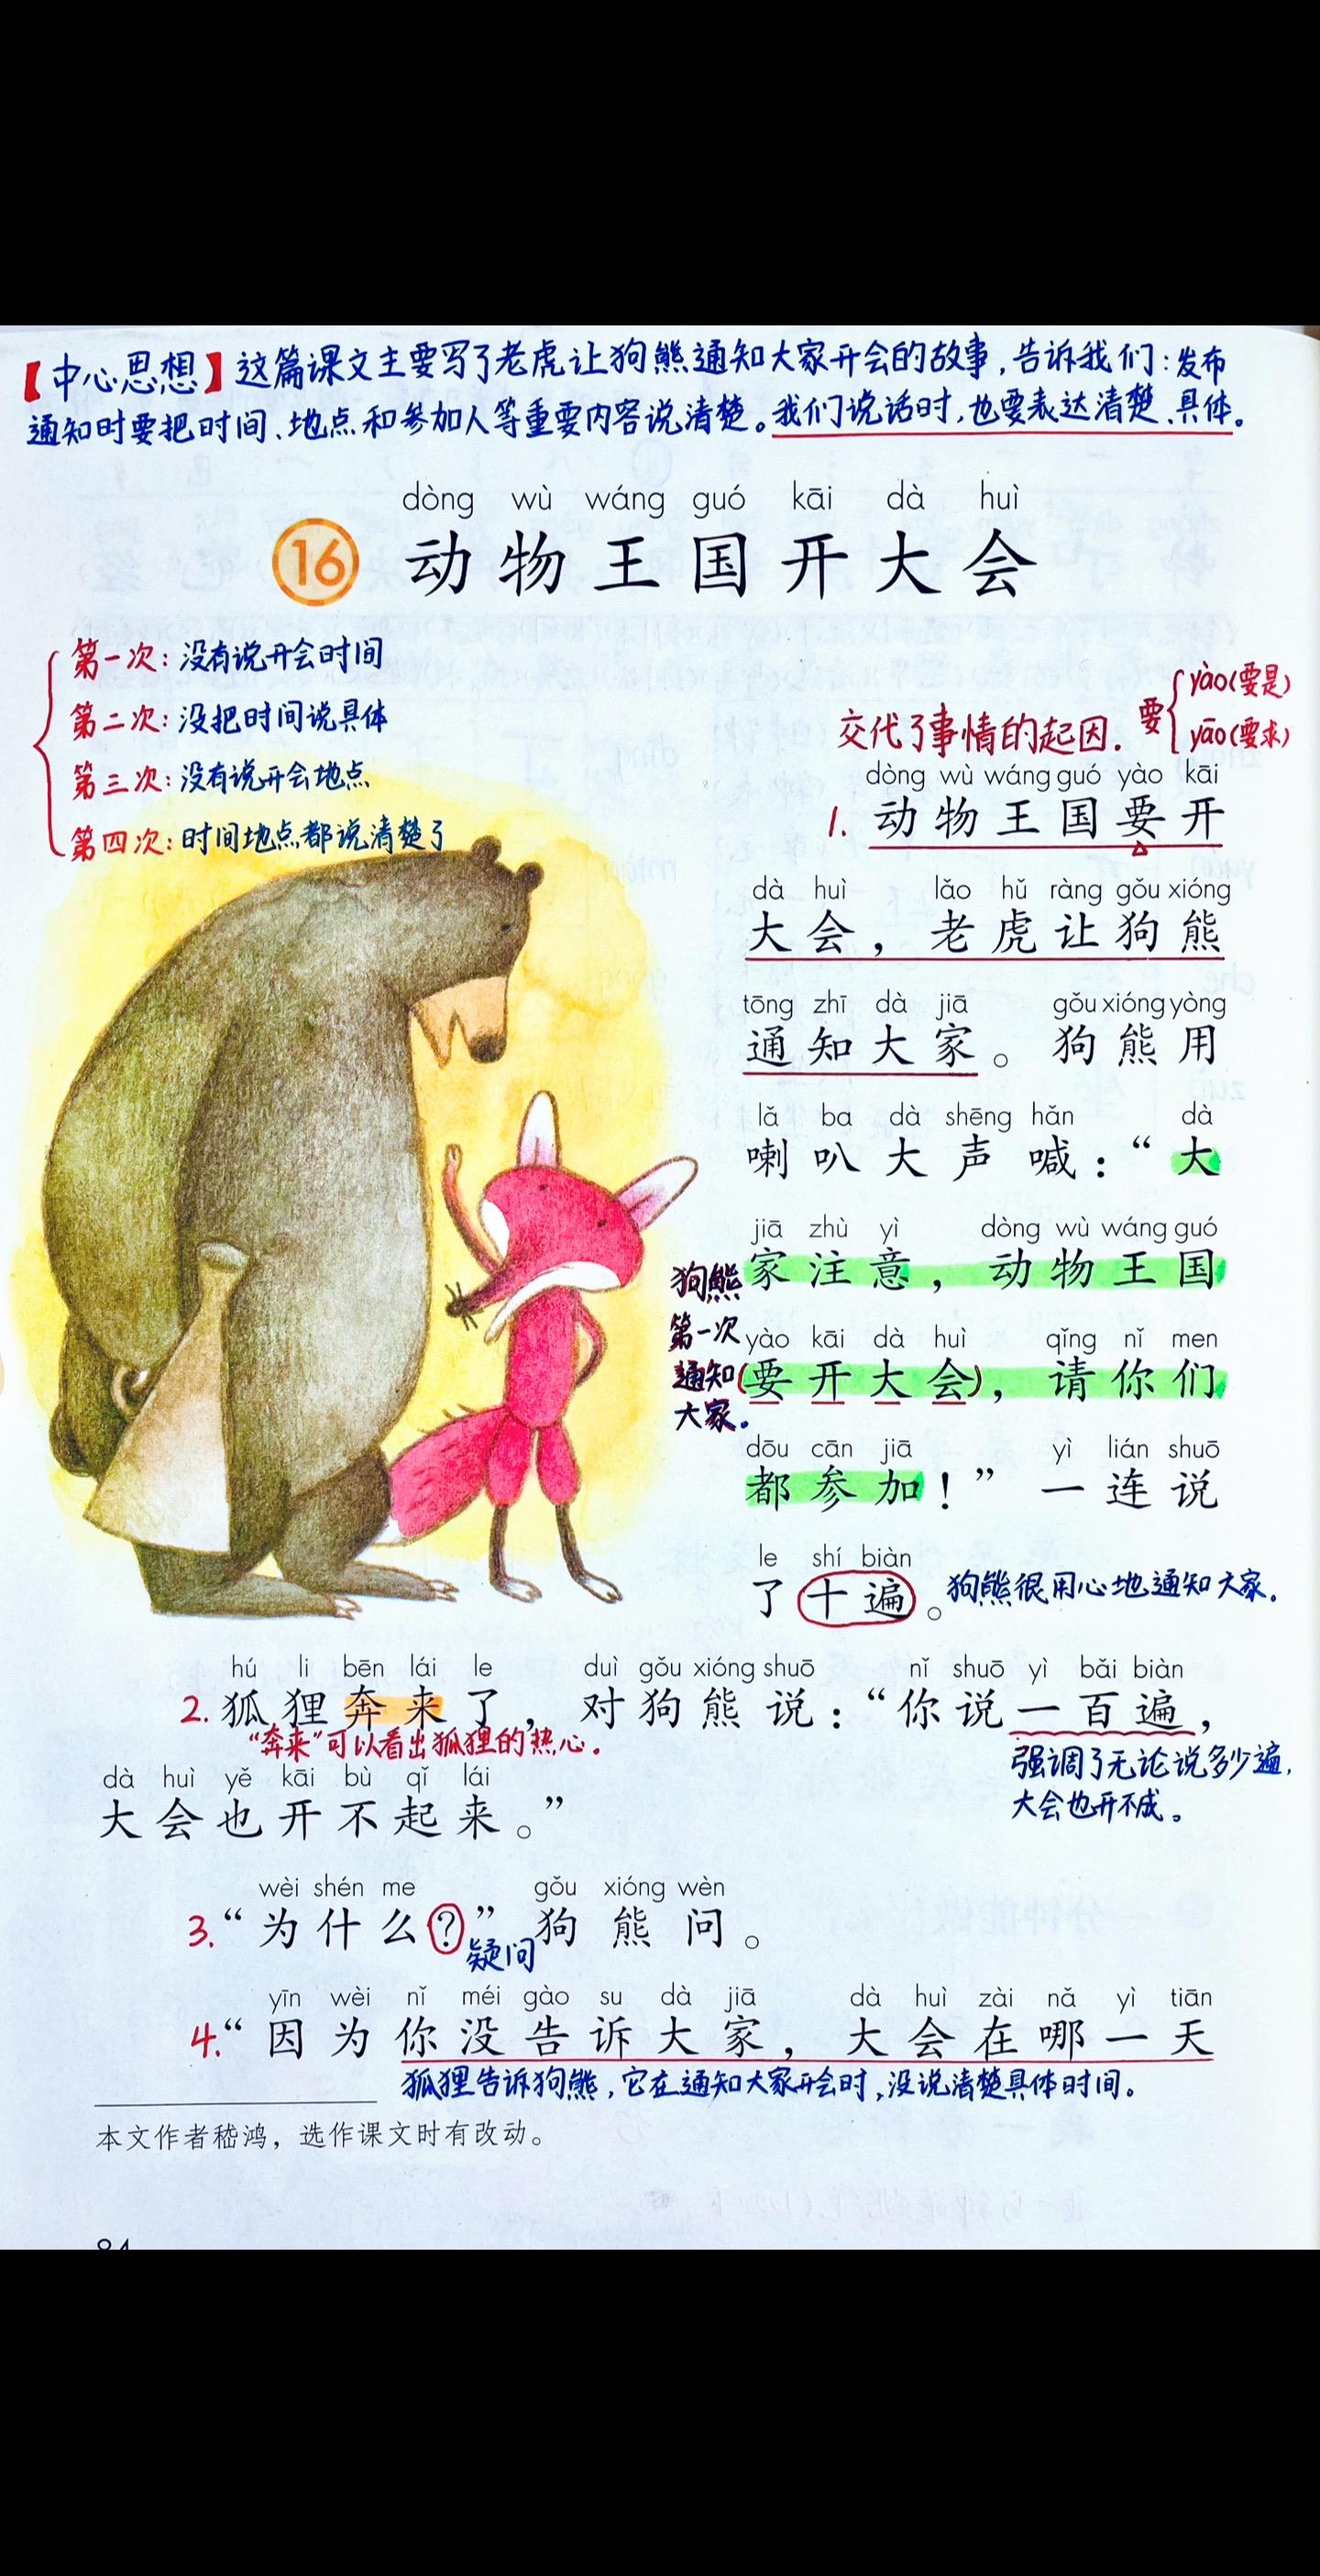 【中心思想】这篇课文主要写了老虎让狗熊通知大家开会的故事,告诉我们:发布
通知时要把时间、地点和参加人等重要内容说清楚。我们说话时,也要表达清楚、具体。
dòng wù wáng guó kāi dà huì
16 动物王国开大会
第一次:没有说开会时间
第二次:没把时间说具体
第三次:没有说开会地点
第四次:时间地点都说清楚了
交代了事情的起因. 要 yào(要是)
yāo(要求)
dòng wù wáng guó yào kāi
1. 动物王国要开
dà huì lǎo hǔ ràng gǒu xióng
大会，老虎让狗熊
tōng zhī dà jiā gǒu xióng yòng
通知大家。狗熊用
lǎ ba dà shēng hǎn dà
喇叭大声喊：“大
jiā zhù yì dòng wù wáng guó
家注意，动物王国
yào kāi dà huì qǐng nǐ men
(要开大会)，请你们
dōu cān jiā yì lián shuō
都参加！”一连说
le shí biàn
了十遍。
狗熊
第一次
通知
大家.
狗熊很用心地通知大家.
hú li bēn lái le duì gǒu xióng shuō nǐ shuō yì bǎi biàn
2. 狐狸奔来了，对狗熊说：“你说一百遍，
“奔来”可以看出狐狸的热心.
强调了无论说多少遍,
大会也开不成。
dà huì yě kāi bù qǐ lái
大会也开不起来。”
wèi shén me gǒu xióng wèn
3. “为什么？”狗熊问。
疑问
yīn wèi nǐ méi gào su dà jiā dà huì zài nǎ yì tiān
4. “因为你没告诉大家，大会在哪一天
狐狸告诉狗熊,它在通知大家开会时,没说清楚具体时间。
本文作者嵇鸿，选作课文时有改动。